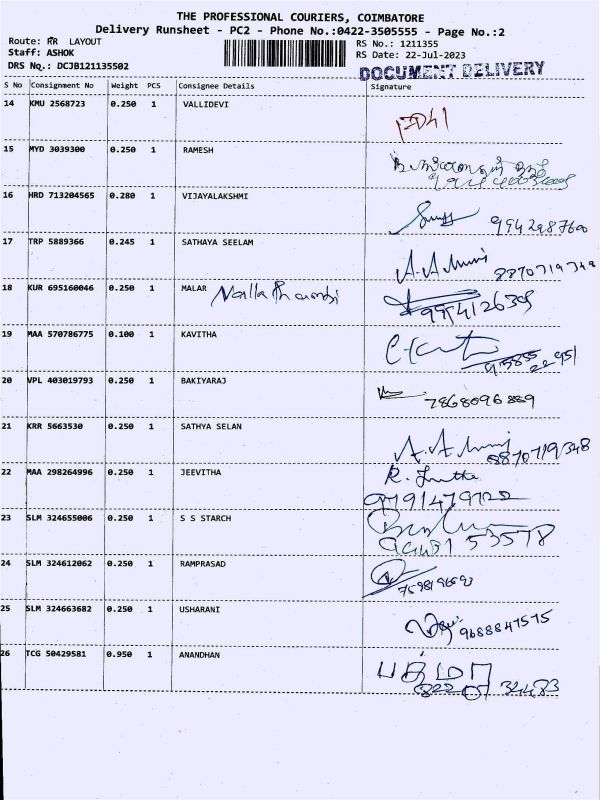 THE PROFESSIONAL COURIERS, COIMBATORE
Delivery Runsheet - PC2 - Phone No.:0422-3505555 - Page No.:2
Route: RR LAYOUT
Staff: ASHOK
DRS No.: DCJB121135502
RS No.: 1211355
RS Date: 22-Jul-2023
DOCUMENT DELIVERY
S No Consignment No Weight PCS Consignee Details Signature
14 KMU 2568723 0.250 1 VALLIDEVI
15 MYD 3039300 0.250 1 RAMESH
16 HRD 713204565 0.280 1 VIJAYALAKSHMI
9942987600
17 TRP 5889366 0.245 1 SATHAYA SEELAM
8870719348
18 KUR 695160046 0.250 1 MALAR
19 MAA 570786775 0.100 1 KAVITHA
20 VPL 403019793 0.250 1 BAKIYARAJ
7868096889
21 KRR 5663530 0.250 1 SATHYA SELAN
8870719348
22 MAA 298264996 0.250 1 JEEVITHA
9791479722
23 SLM 324655006 0.250 1 S S STARCH
24 SLM 324612062 0.250 1 RAMPRASAD
25 SLM 324663682 0.250 1 USHARANI
9688847575
26 TCG 50429581 0.950 1 ANANDHAN
பத்மா